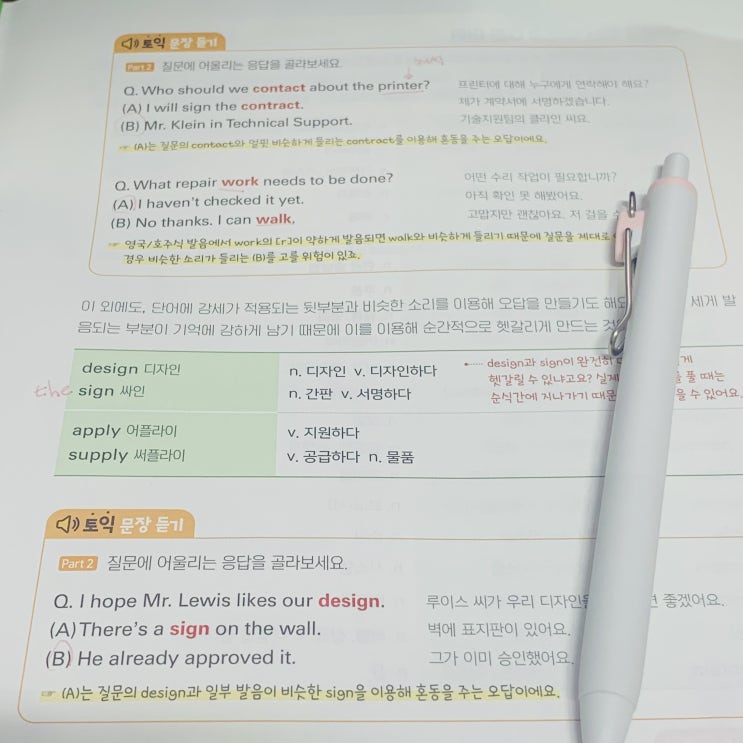 토익 문장 듣기
Part 2 질문에 어울리는 응답을 골라보세요.
Q. Who should we contact about the printer? 프린터에 대해 누구에게 연락해야 해요?
(A) I will sign the contract. 제가 계약서에 서명하겠습니다.
(B) Mr. Klein in Technical Support. 기술지원팀의 클라인 씨요.
☞ (A)는 질문의 contact와 얼핏 비슷하게 들리는 contract를 이용해 혼동을 주는 오답이에요.
Q. What repair work needs to be done? 어떤 수리 작업이 필요합니까?
(A) I haven't checked it yet. 아직 확인 못 해봤어요.
(B) No thanks. I can walk. 고맙지만 괜찮아요. 저 걸을
☞ 영국/호주식 발음에서 work의 [r]이 약하게 발음되면 walk와 비슷하게 들리기 때문에 질문을 제대로
경우 비슷한 소리가 들리는 (B)를 고를 위험이 있죠.
이 외에도, 단어에 강세가 적용되는 뒷부분과 비슷한 소리를 이용해 오답을 만들기도 해요 세게 발
음되는 부분이 기억에 강하게 남기 때문에 이를 이용해 순간적으로 헷갈리게 만드는
design 디자인 n. 디자인 v. 디자인하다
the sign 싸인 n. 간판 v. 서명하다
design과 sign이 완전히 게
헷갈릴 수 있냐고요? 실제 풀 때는
순식간에 지나가기 때문 을 수 있어요.
apply 어플라이 v. 지원하다
supply 써플라이 v. 공급하다 n. 물품
토익 문장 듣기
Part 2 질문에 어울리는 응답을 골라보세요.
Q. I hope Mr. Lewis likes our design. 루이스 씨가 우리 디자인을 면 좋겠어요.
(A) There's a sign on the wall. 벽에 표지판이 있어요.
(B) He already approved it. 그가 이미 승인했어요.
☞ (A)는 질문의 design과 일부 발음이 비슷한 sign을 이용해 혼동을 주는 오답이에요.